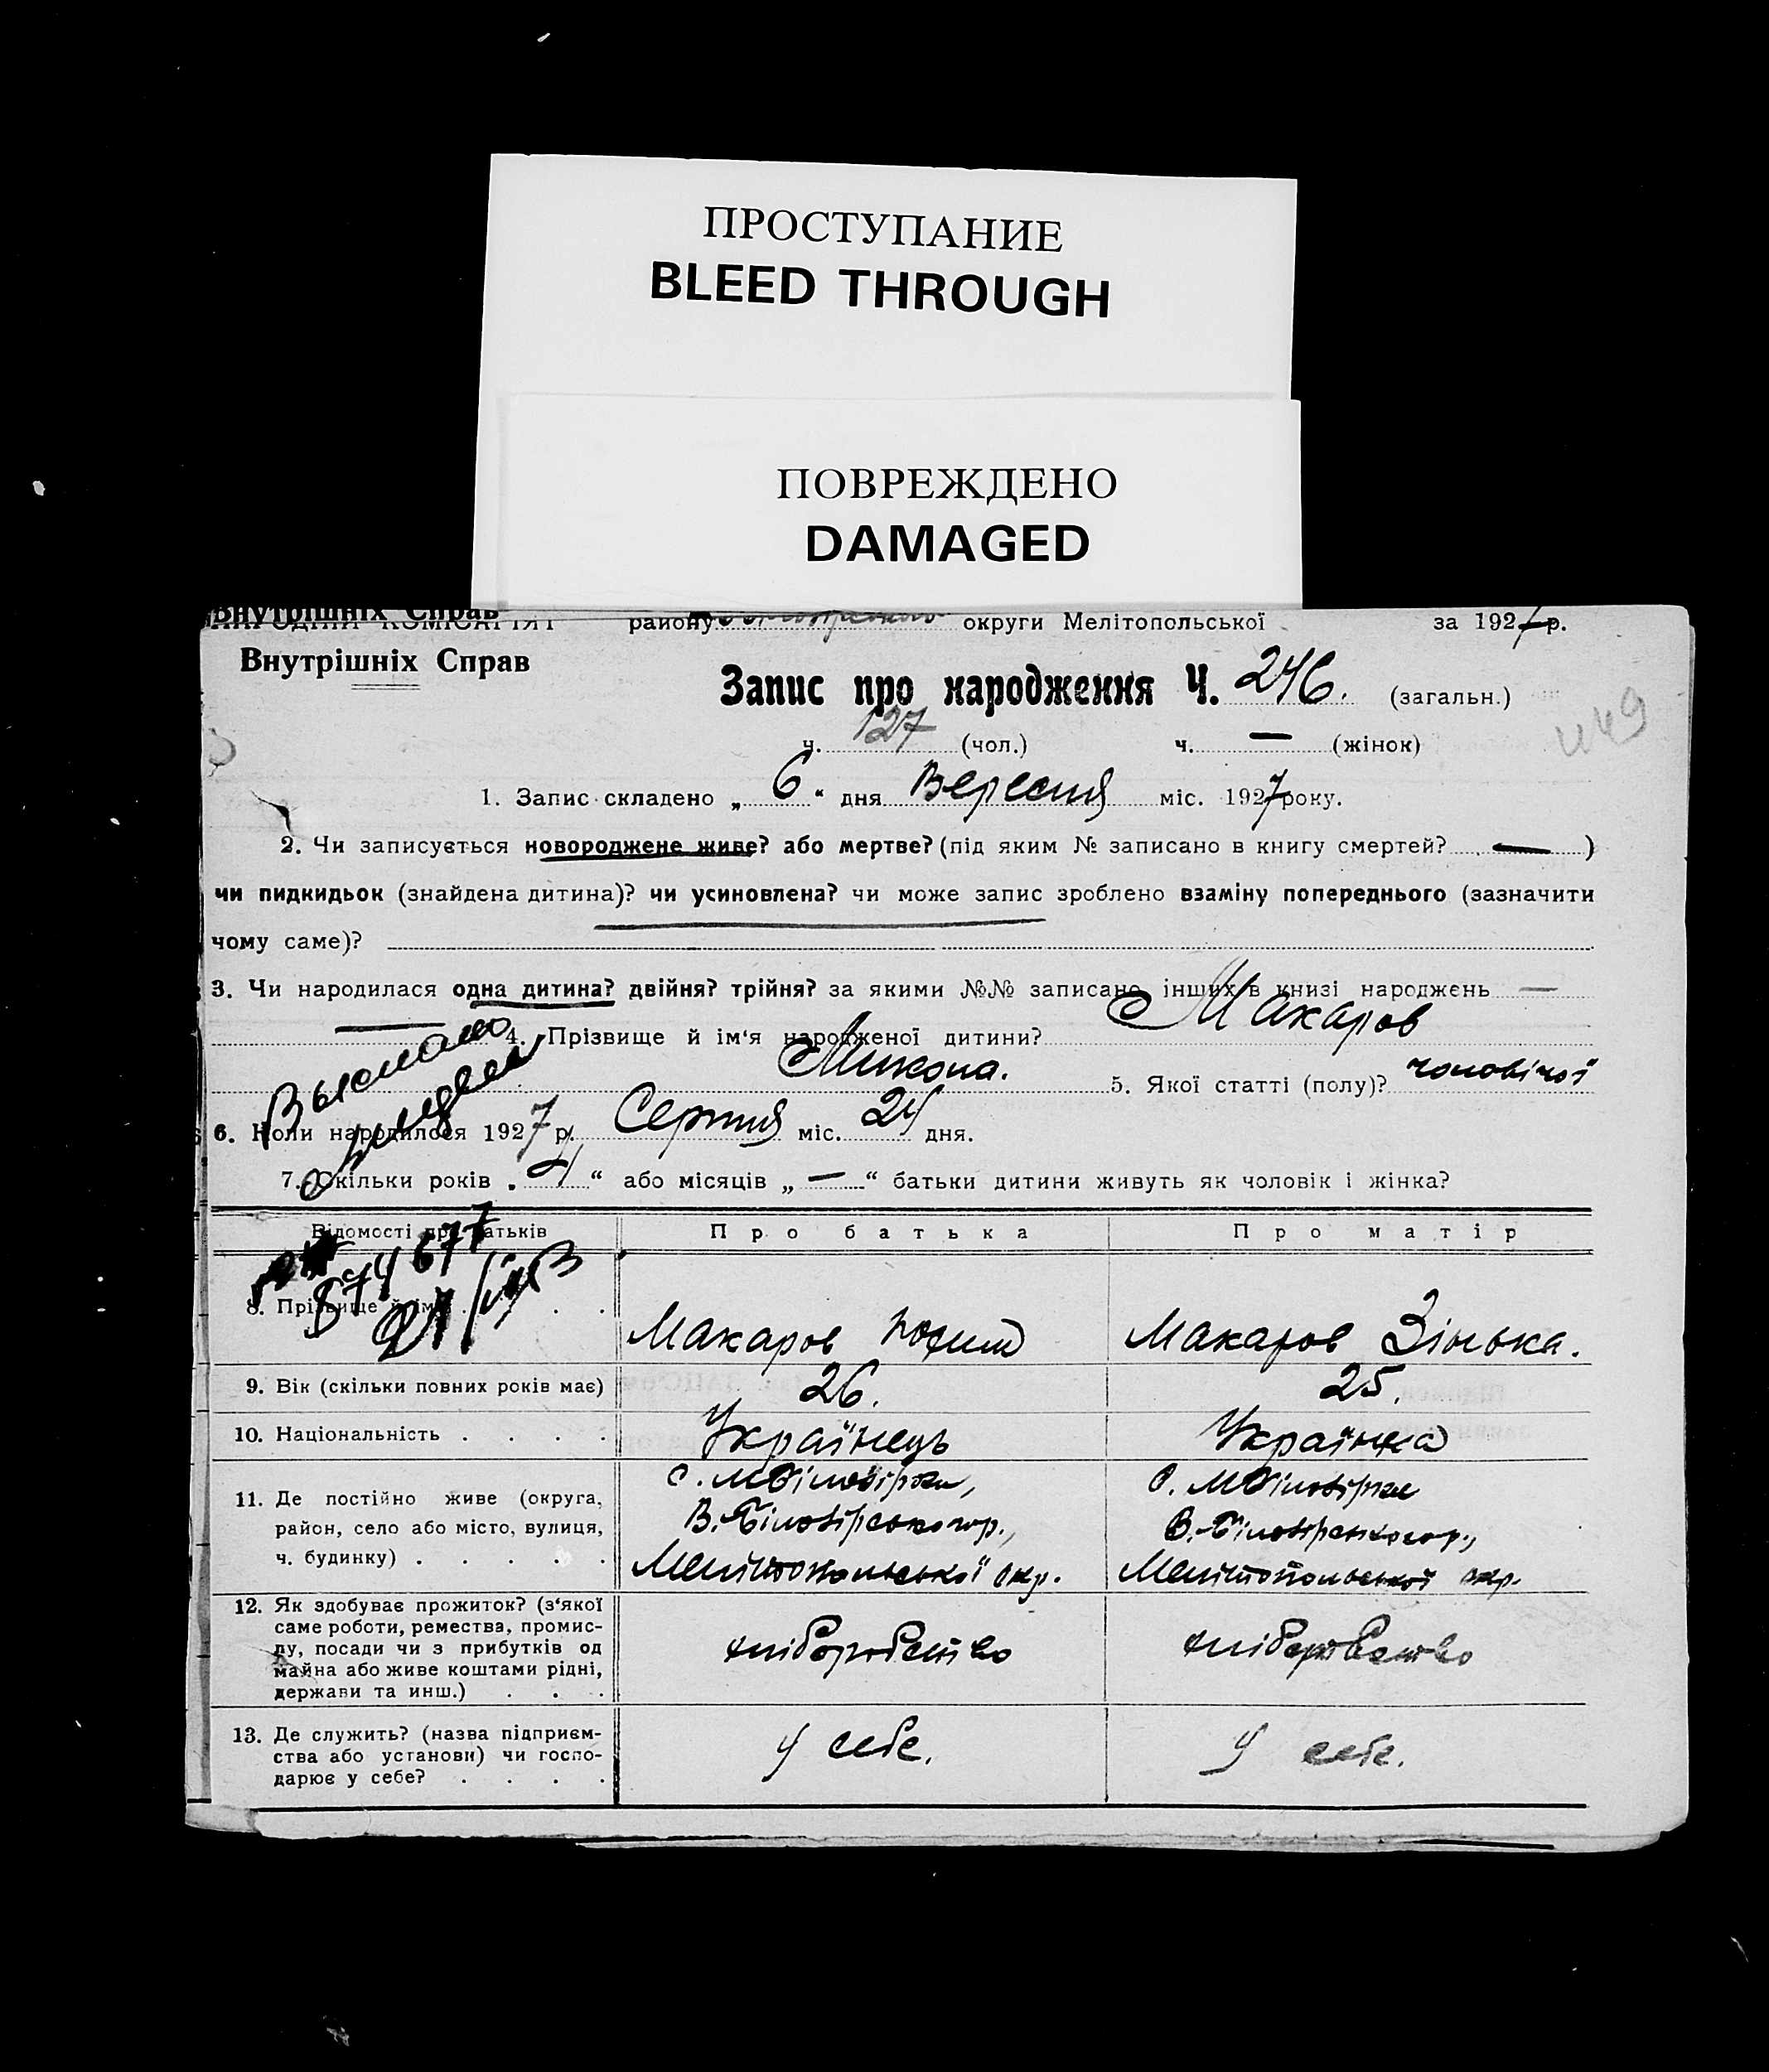 ПРОСТУПАНИЕ
BLEED THROUGH
ПОВРЕЖДЕНО
DAMAGED
Внутрішніх Справ
НАРОДНИЙ КОМІСАРІЯТ району округи Мелітопольської за 1927 р.
Внутрішніх Справ
Запис про народження Ч. 246. (загальн.)
449
ч. 127 (чол.) ч. — (жінок)
1. Запис складено „ 6 “ дня Вересня міс. 1927 року.
2. Чи записується новороджене живе? або мертве? (під яким № записано в книгу смертей? — )
чи пидкидьок (знайдена дитина)? чи усиновлена? чи може запис зроблено взаміну попереднього (зазначити
чому саме)?
3. Чи народилася одна дитина? двійня? трійня? за якими №№ записано інших в книзі народжень —
— 4. Прізвище й ім‘я народженої дитини? Макаров
Микола. 5. Якої статті (полу)? чоловічої
Выслано
6. Коли народилося 1927 р. Серпня міс. 24 дня.
7. Скільки років „ 4 “ або місяців „ — “ батьки дитини живуть як чоловік і жінка?
Відомості про батьків Про батька Про матір
874677
8. Прізвище й ім‘я . . . Макаров Макаров Зінька.
9. Вік (скільки повних років має) 26. 25.
10. Національність . . . . Українець Українка
11. Де постійно живе (округа, район, село або місто, вулиця, ч. будинку) . . . . .
с. МБілозірки, с. МБілозірки
В.-Білозірського р., В.-Білозірського р.,
Мелітопольської окр. Мелітопольської окр.
12. Як здобуває прожиток? (з‘якої
саме роботи, ремества, промис-
лу, посади чи з прибутків од
майна або живе коштами рідні,
держави та инш.) . . .
хліборобство хліборобство
13. Де служить? (назва підприєм-
ства або установи) чи госпо-
дарює у себе? . . . .
У себе. У себе.